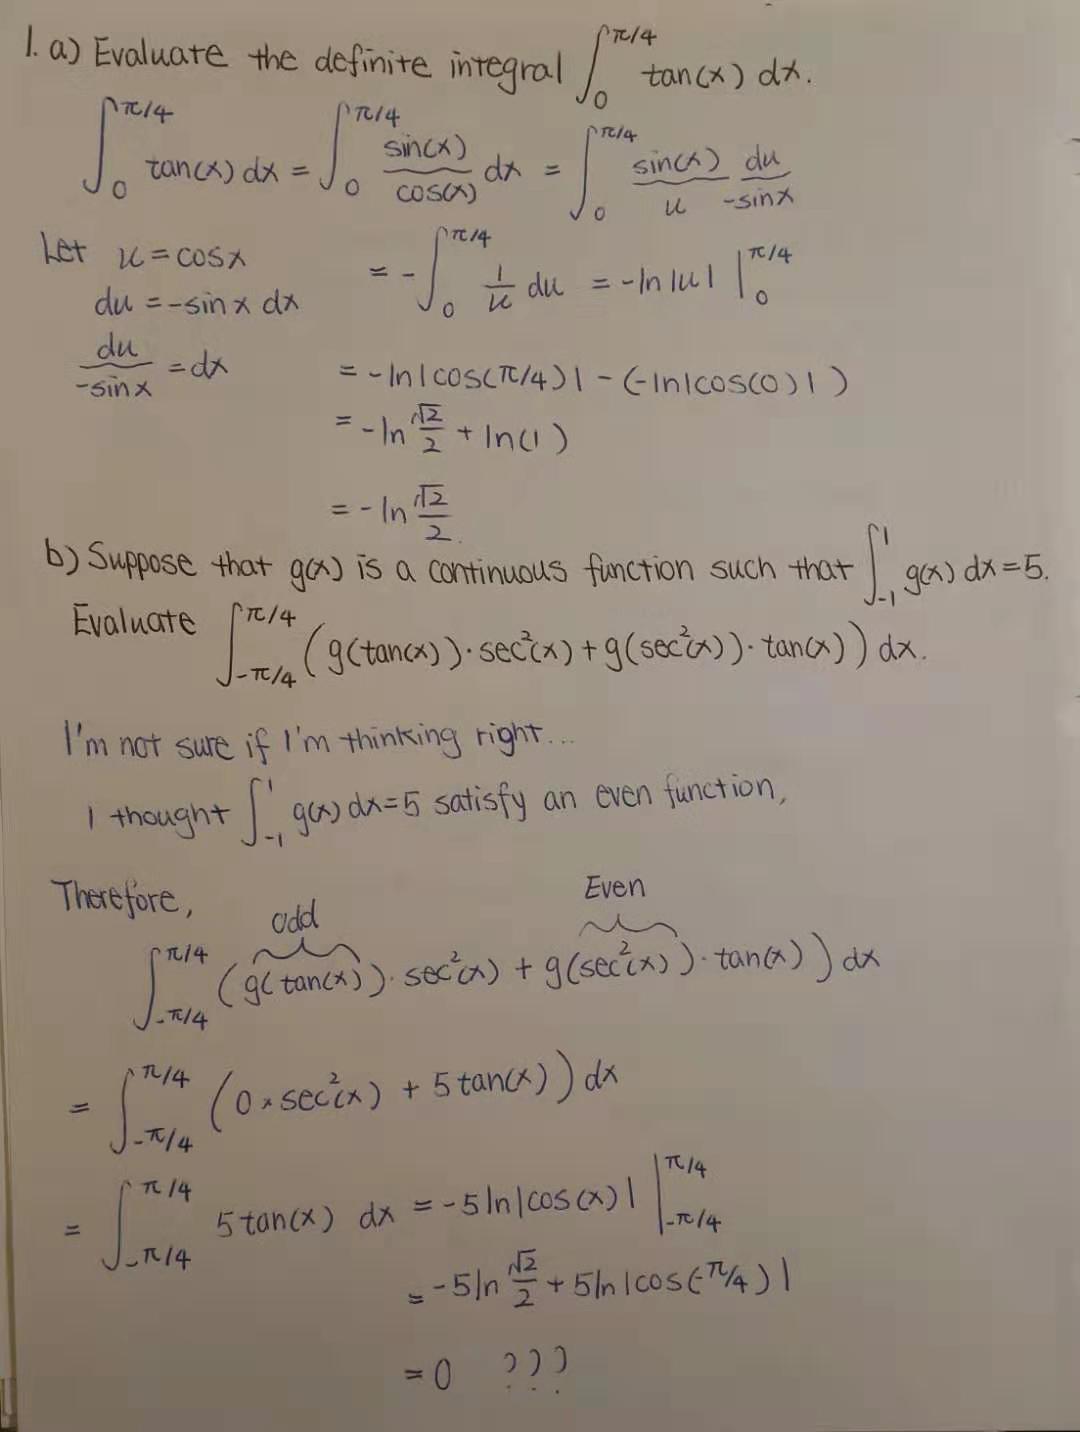 1. a) Evaluate the definite integral ∫₀^{π/4} tan(x) dx.
∫₀^{π/4} tan(x) dx = ∫₀^{π/4} sin(x)/cos(x) dx = ∫₀^{π/4} sin(x)/u du/-sinx
Let u = cosx
du = -sinx dx
du/-sinx = dx
= -∫₀^{π/4} 1/u du = -ln|u| |₀^{π/4}
= -ln|cos(π/4)| - (-ln|cos(0)|)
= -ln √2/2 + ln(1)
= -ln √2/2.
b) Suppose that g(x) is a continuous function such that ∫₋₁^1 g(x) dx = 5.
Evaluate ∫_{-π/4}^{π/4} (g(tan(x))·sec²(x) + g(sec²(x))·tan(x)) dx.
I'm not sure if I'm thinking right...
I thought ∫₋₁^1 g(x) dx = 5 satisfy an even function,
Therefore,
odd Even
∫_{-π/4}^{π/4} (g(tan(x))·sec²(x) + g(sec²(x))·tan(x)) dx
= ∫_{-π/4}^{π/4} (0 × sec²(x) + 5tan(x)) dx
= ∫_{-π/4}^{π/4} 5tan(x) dx = -5ln|cos(x)| |_{-π/4}^{π/4}
= -5ln √2/2 + 5ln|cos(-π/4)|
= 0 ???